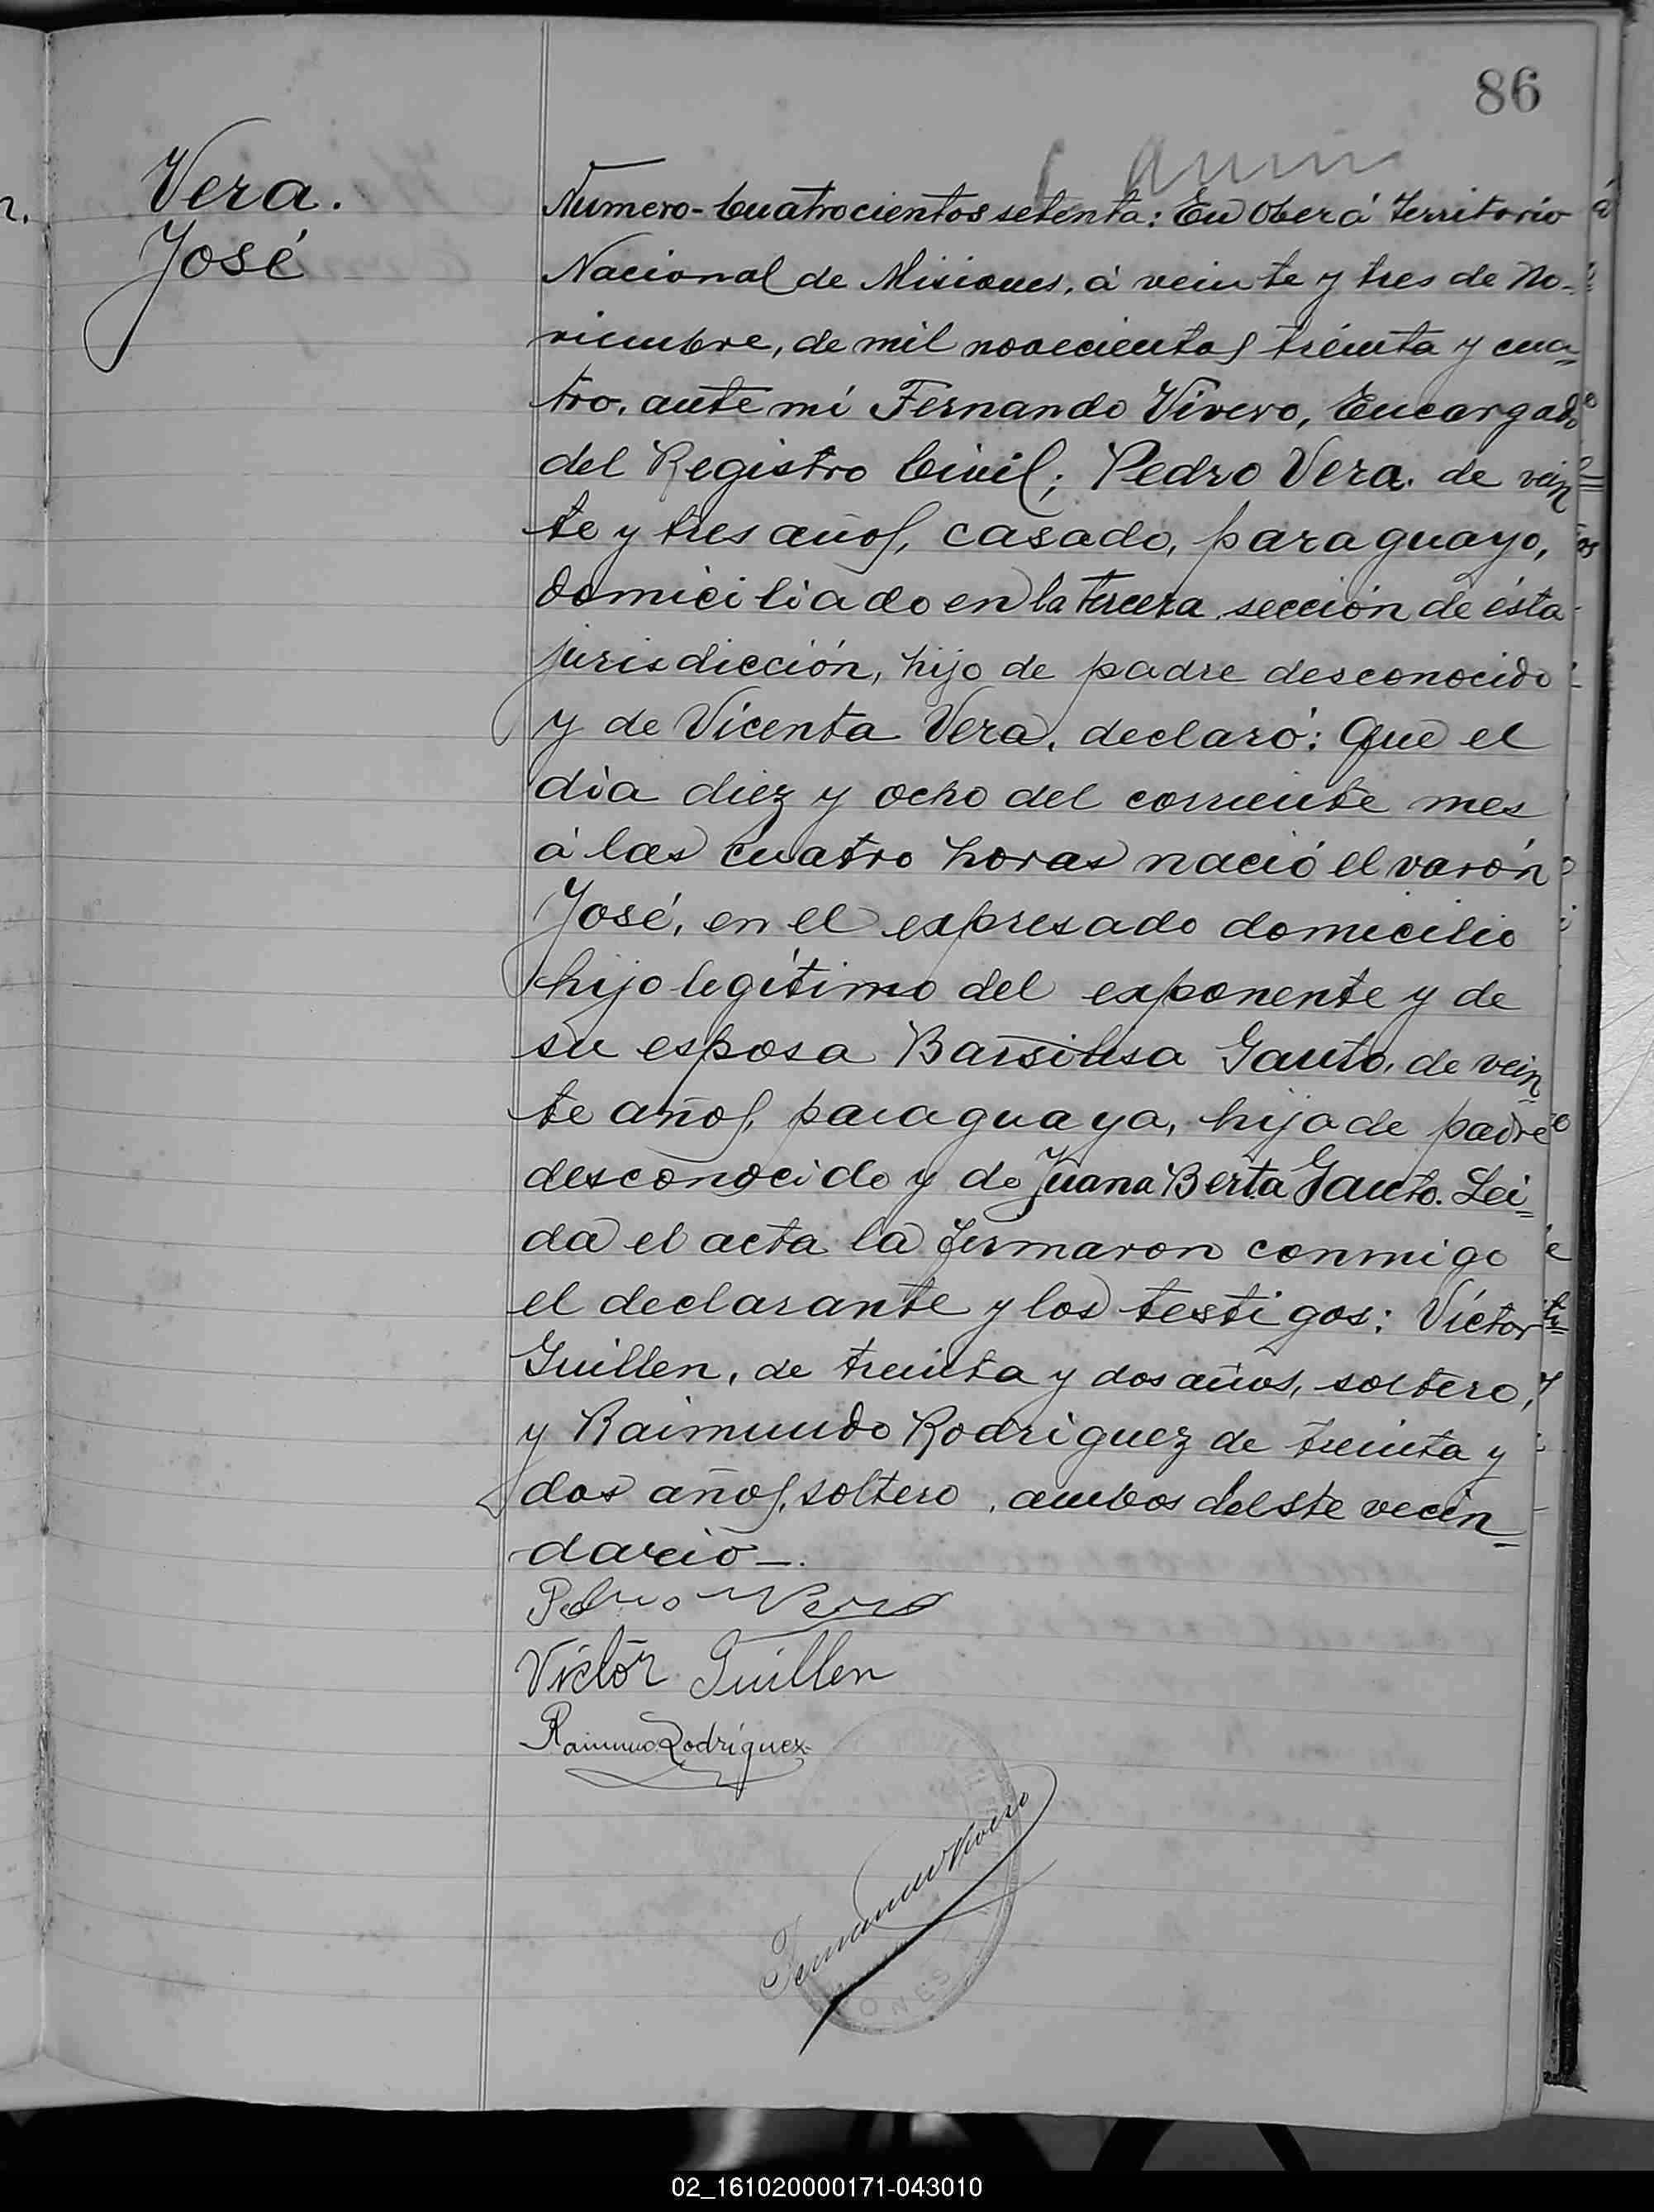 86
Vera.
José
Numero-Cuatrocientos setenta: En Oberá Territorio
Nacional de Misiones, á veinte y tres de No-
viembre, de mil novecientos treinta y cua-
tro, ante mi Fernando Vivero, Encargado
del Registro Civil; Pedro Vera, de vein
te y tres años, casado, paraguayo,
domiciliado en la tercera sección de ésta
jurisdicción, hijo de padre desconocido
y de Vicenta Vera, declaró: Que el
dia diez y ocho del corriente mes
á las cuatro horas nació el varón
José, en el expresado domicilio
hijo legítimo del exponente y de
su esposa Barsilisa Gauto, de vein
te años, paraguaya, hija de padre
desconocido y de Juana Berta Gauto. Lei=
da el acta la firmaron conmigo
el declarante y los testigos: Víctor
Guillen, de treinta y dos años, soltero,
y Raimundo Rodriguez de treinta y
dos años, soltero, ambos deleste vecin=
dario—.
Pedro Vera
Victor Guillen
Raimundo Rodriguez
Fernando Vivero
ONES
02_161020000171-043010